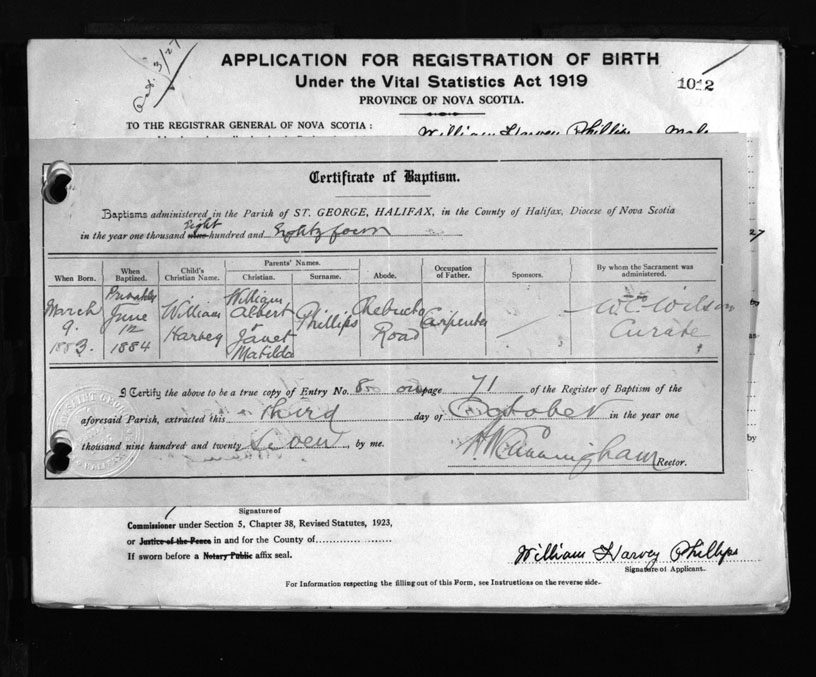 Oct. 3/27
APPLICATION FOR REGISTRATION OF BIRTH
Under the Vital Statistics Act 1919
1012
PROVINCE OF NOVA SCOTIA.
TO THE REGISTRAR GENERAL OF NOVA SCOTIA :
William Harvey Phillips Male
Certificate of Baptism.
Baptisms administered in the Parish of ST. GEORGE, HALIFAX, in the County of Halifax, Diocese of Nova Scotia
Eight
in the year one thousand nine hundred and Eighty four
When Born.
When Baptized.
Child's Christian Name.
Parents' Names.
Christian.
Surname.
Abode.
Occupation of Father.
Sponsors.
By whom the Sacrament was administered.
March 9. 1883.
Privately June 12 1884
William Harvey
William Albert & Janet Matilda
Phillips
Chebucto Road
Carpenter
Wilson Curate
I Certify the above to be a true copy of Entry No. on page 71 of the Register of Baptism of the
aforesaid Parish, extracted this third day of October in the year one
thousand nine hundred and twenty Seven, by me.
Cunningham Rector.
Signature of
Commissioner under Section 5, Chapter 38, Revised Statutes, 1923,
or Justice of the Peace in and for the County of
If sworn before a Notary Public affix seal.
William Harvey Phillips
Signature of Applicant.
For Information respecting the filling out of this Form, see Instructions on the reverse side.
27
by